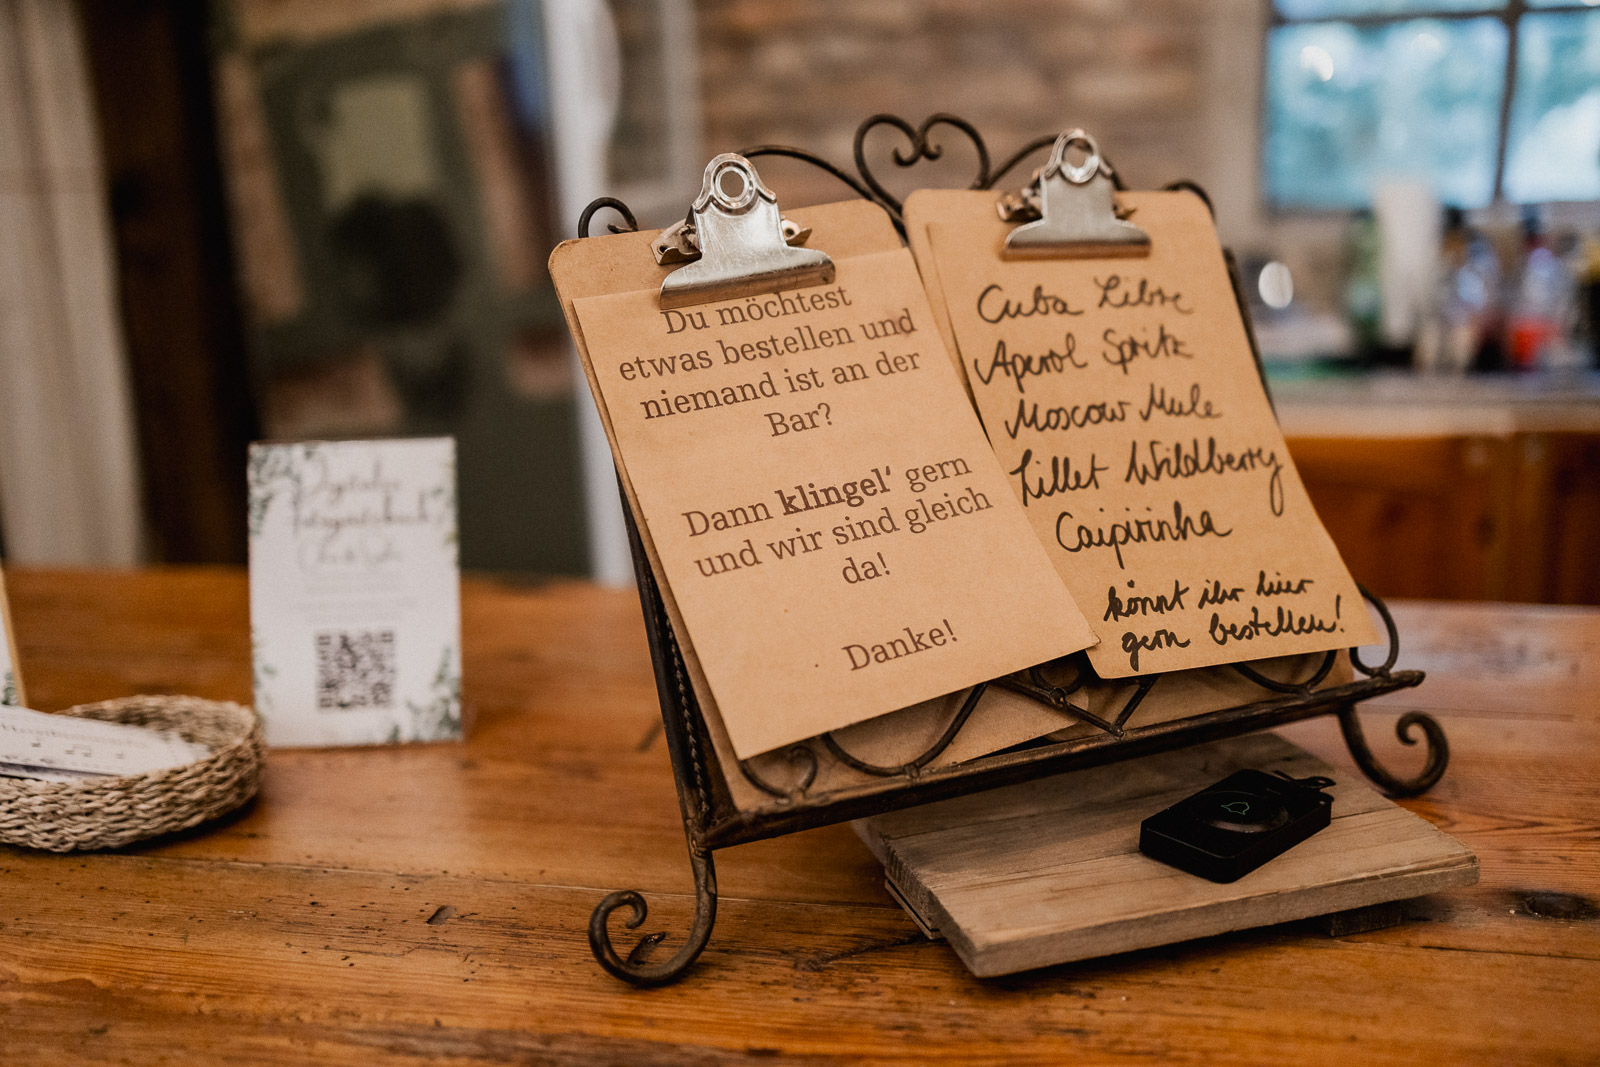 Du möchtest
etwas bestellen und
niemand ist an der
Bar?
Dann klingel‘ gern
und wir sind gleich
da!
Danke!
Cuba Libre
Aperol Spritz
Moscow Mule
Lillet Wildberry
Caipirinha
könnt ihr hier
gern bestellen!